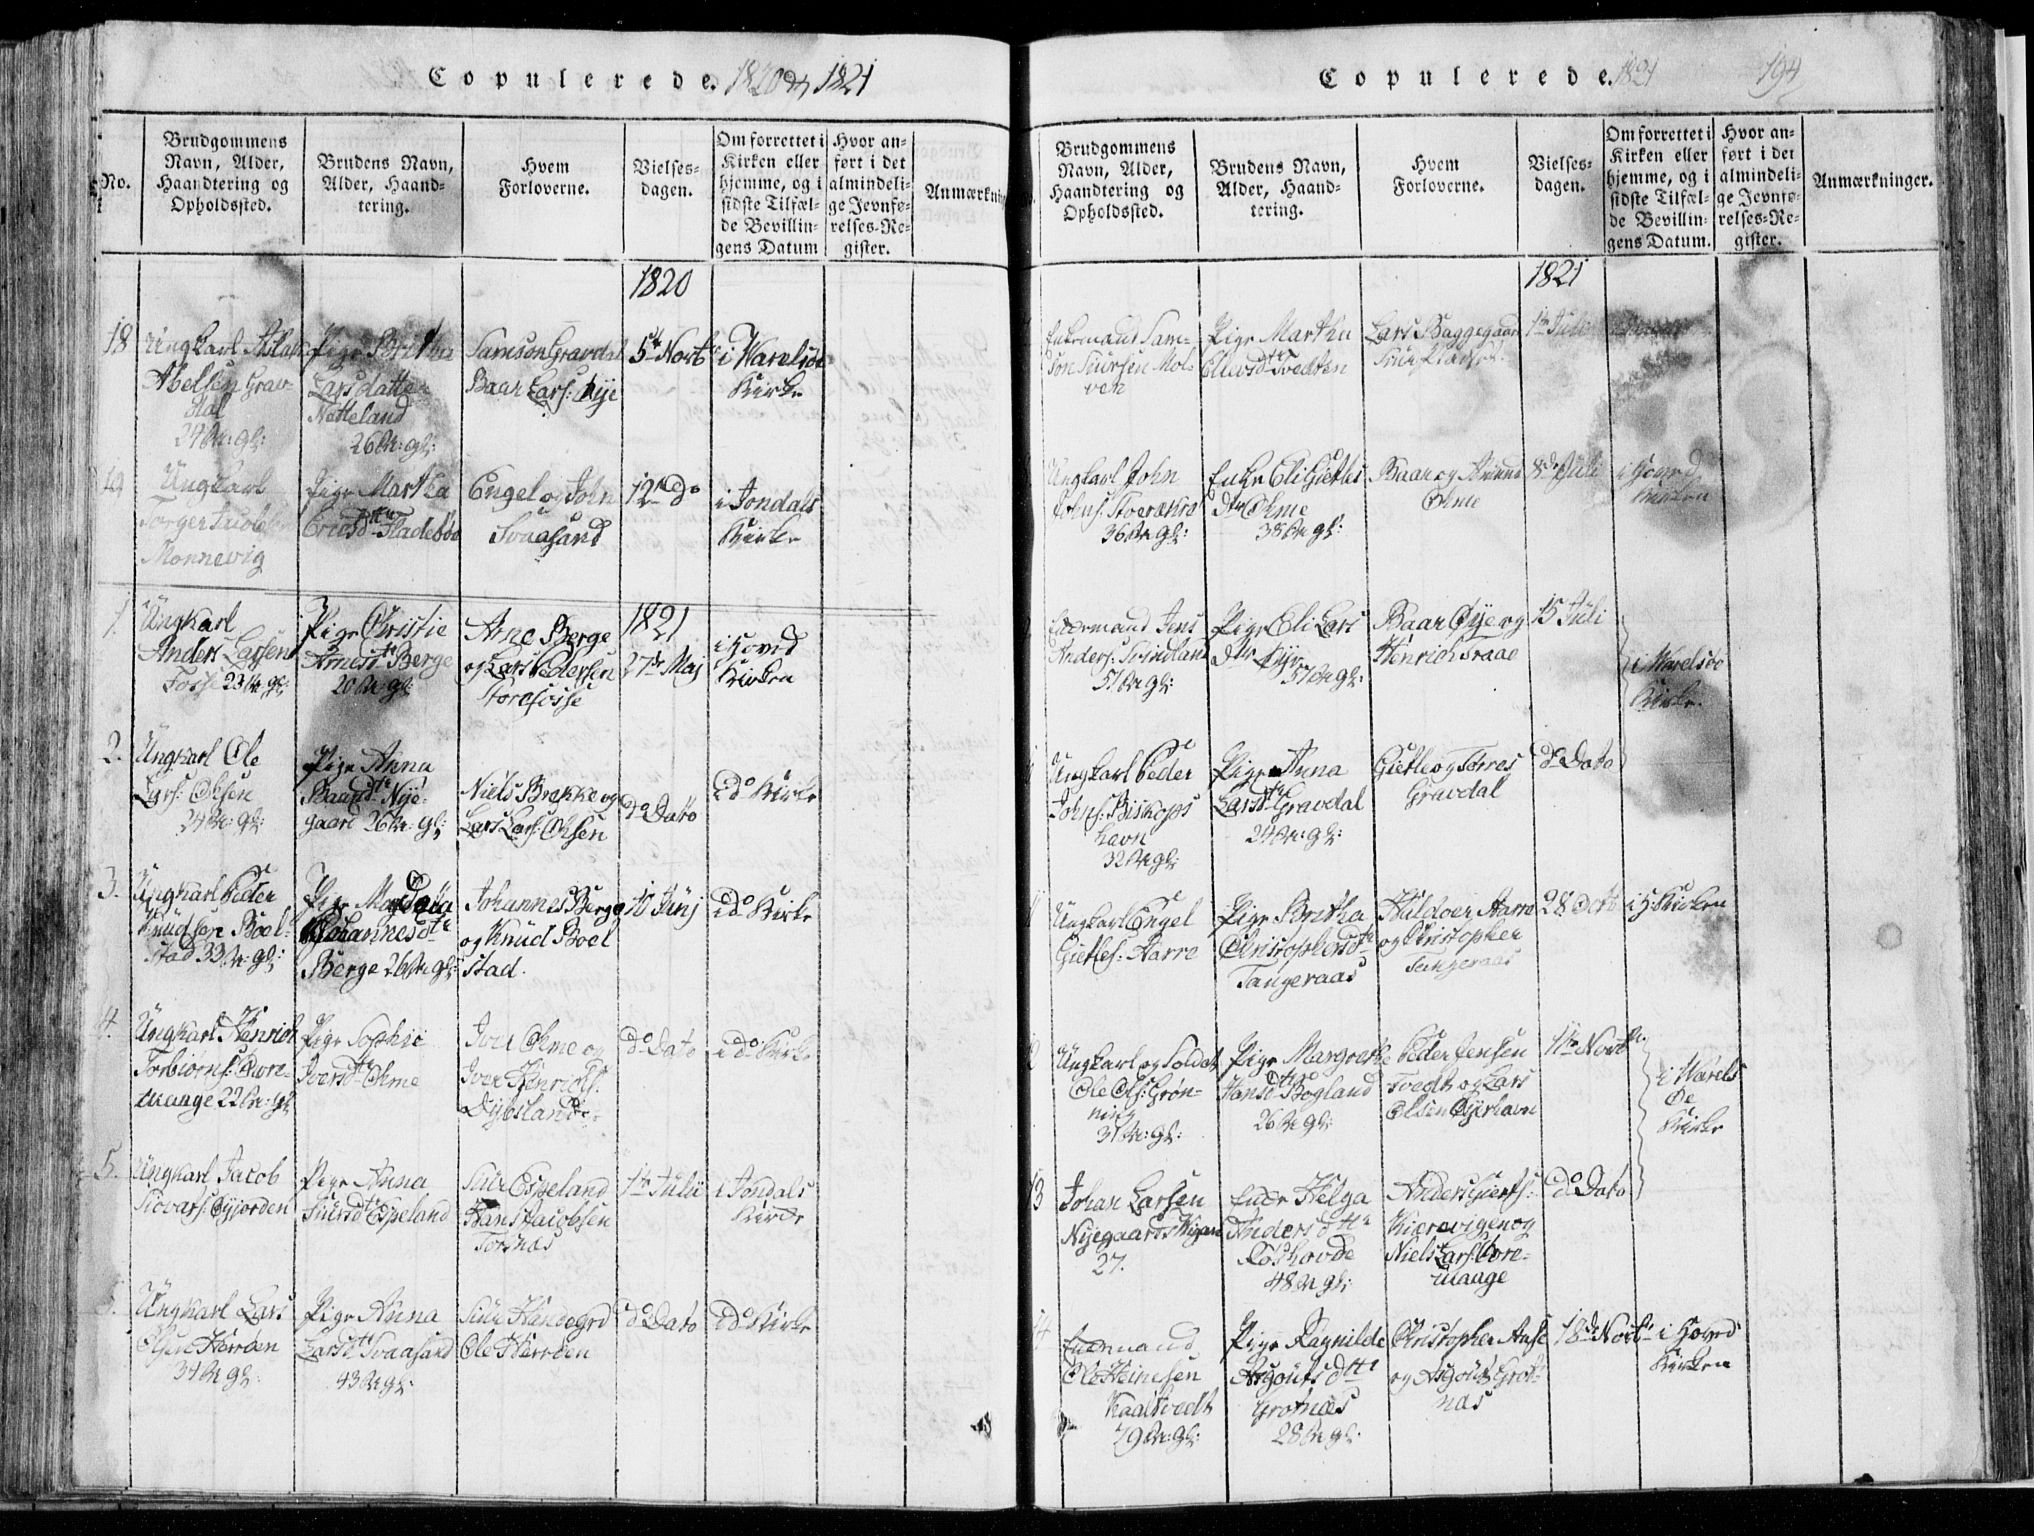 Copulerede. 1820 og 1821
No.
Brudgommens
Navn, Alder,
Haandtering og
Opholdssted.
Brudens Navn,
Alder, Haand-
tering.
Hvem
Forloverne.
Vielses-
dagen.
Om forrettet i
Kirken eller
hjemme, og i
sidste Tilfæl-
de Bevillin-
gens Datum
Hvor an-
ført i det
almindeli-
ge Jevnfø-
relses-Re-
gister.
Anmærkning
1820
18
Ungkarl Aslak
Abelsen Grav
dal
24 Aar: gl:
Pige Britha
Larsdatter
Netteland
26 Aar: gl:
Samson Gravdal
Baar Lars: Øye
5te Novb
i Warelsøe
Kirke
19
Ungkarl
Torger Jacobs
Monnevig
Pige Martha
Ericsdtr Fladebøe
Engel og John
Svaasand
12te do
i Jondals
Kirke
1.
Ungkarl
Anders Larsen
Fosse 23 Aar gl:
Pige Christie
Arnesdtr Berge
20 Aar gl:
Arne Berge
og Lars Pedersen
Torefosse
1821
27de Maj
i Hoved
Kirken
2.
Ungkarl Ole
Lars: Ohsen
24 Aar: gl:
Pige Anna
Baardsdtr Nye-
gaard 26 Aar: gl:
Niels Brekke og
Lars Lars: Ohsen
do Dato
i do Kirke
3.
Ungkarl Peder
Knudsen Boel-
stad 33 Aar: gl:
Pige Magdela
Johannesdtr
Berge 26 Aar gl:
Johannes Berge
og Knud Boel
stad.
10 Junj
i do Kirke
4.
Ungkarl Henrich
Torbiørns: Øvre-
Waage 22 Aar: gl:
Pige Sophie
Iversdtr Ohme
Iver Ohme og
Iver Henrichs:
Dybsland
do Dato
i do Kirke
5.
Ungkarl Jacob
Siovats: Eyjorden
Pige Anna
Siursdtr Espeland
Siur Espeland
Hans Jacobsen
Torsnæs
1te Julii
i Jondals
Kirke
Ungkarl Lars
Olsen Herreen
34 Aar gl:
Pige Anna
Larsdtr Svaasand
43 Aar gl:
Siur Handegrd
Ole Herreen
do Dato
i do Kirke
Copulerede. 1821
194
Brudgommens
Navn, Alder,
Haandtering og
Opholdssted.
Brudens Navn,
Alder, Haand-
tering.
Hvem
Forloverne.
Vielses-
dagen.
Om forrettet i
Kirken eller
hjemme, og i
sidste Tilfæl-
de Bevillin-
gens Datum.
Hvor an-
ført i det
almindeli-
ge Jevnfø-
relses-Re-
gister.
Anmærkninger.
1821
Enkemand Sam-
son Siursen Mol-
ven
Pige Martha
Ellevsdtr Tvedten
Lars Baggegaard
1te Julii
Ungkarl John
Johns: Stoeraker
36 Aar gl:
Enke Eli Giertles
Dtr Ohme
38 Aar gl:
Baar og
Ohme
8de Juli
i Hoved
Kirken
Enkemand Jens
Anders: Svindland
51 Aar gl:
Pige Eli Lars
Dtr Øye
37 Aar gl:
Baar Øye og
Henrich Traae
15 Juli
i Warelsøe
Kirke.
Ungkarl Peder
Johns: Biskops
havn
32 Aar gl:
Pige Anna
Larsdtr Gravdal
24 Aar: gl:
Giertle og Torres
Gravdal
do Dato
Ungkarl Engel
Giertles: Aarre
Pige Britha
Christophersdtr
Tangeraas
Haldoer Aarre
og Christopher
Tangeraas
28 Octb
i H: Kirken
Ungkarl og Soldat
Ole Ols: Grøn-
ning
31 Aar: gl:
Pige Margrethe
Hansdtr Bogland
26 Aar gl:
Peder Jensen
Tvedt og Lars
Olsen Eyerhavn
11te Novbr
i Warels
Øe
Kirke
13
Johan Larsen
Nyegaards Wigen
27.
Enke Helga
Andersdtr
Roshovde
48 Aar gl:
Anders Giertls:
Kierevigen og
Niels Lars: Øvre-
Waage
do Dato
14
Enkemand
Ole Heinesen
Kaaltvedt
79 Aar: gl:
Pige Ragnilde
Asgoutsdtr
Grotnæs
28 Aar gl:
Christopher Aase
og Asgout Grot-
næs
18de Novbr
i Hoved
Kirken